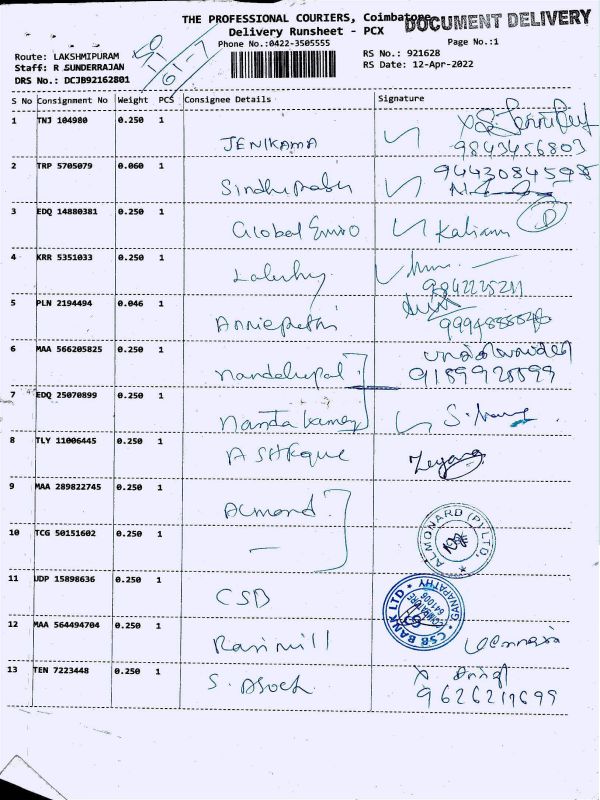 THE PROFESSIONAL COURIERS, Coimbatore
DOCUMENT DELIVERY
Delivery Runsheet - PCX
Phone No.:0422-3505555
Page No.:1
Route: LAKSHMIPURAM
Staff: R SUNDERRAJAN
DRS No.: DCJB92162801
RS No.: 921628
RS Date: 12-Apr-2022
S No Consignment No Weight PCS Consignee Details Signature
1 TNJ 104980 0.250 1 JENIKAMA
9843456803
2 TRP 5705079 0.060 1 Sindhuprabu
9443084598
3 EDQ 14880381 0.250 1 Global Enviro
4 KRR 5351033 0.250 1
9842225211
5 PLN 2194494 0.046 1
6 MAA 566205825 0.250 1 Nandalupal
7 EDQ 25070899 0.250 1
8 TLY 11006445 0.250 1
9 MAA 289822745 0.250 1 Almond
10 TCG 50151602 0.250 1 —
ALMONARD (P) LTD.
11 UDP 15898636 0.250 1 CSB
CSB BANK LTD
GANAPATHY
COIMBATORE
641006
12 MAA 564494704 0.250 1
13 TEN 7223448 0.250 1 S. Asock
9626217699